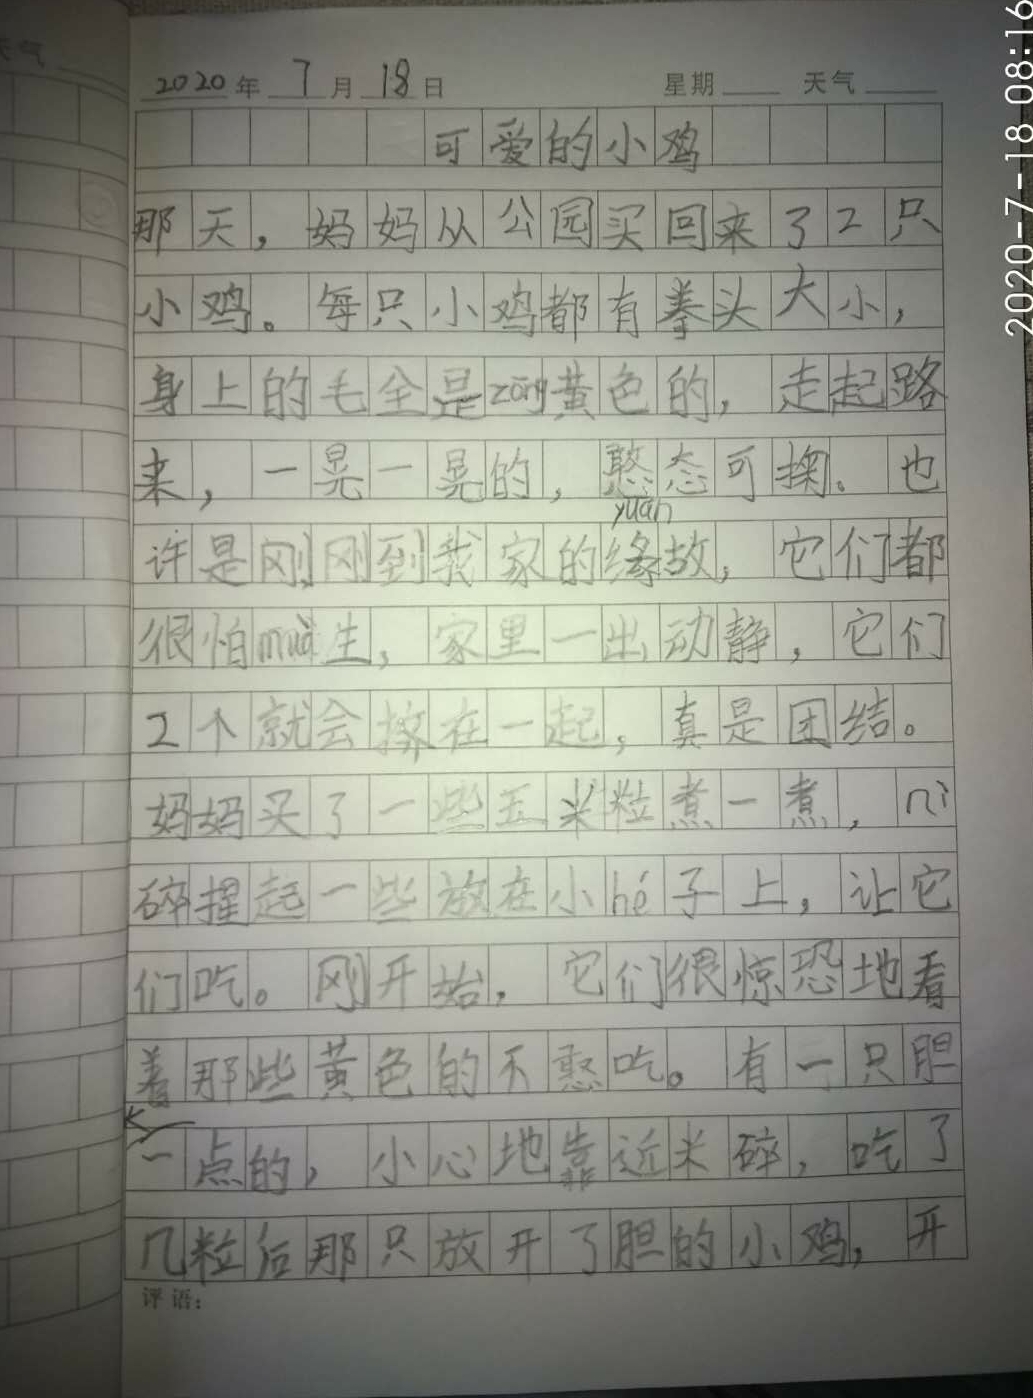 天气
2020年 7月 18日 星期 天气
可爱的小鸡
那天，妈妈从公园买回来了2只
小鸡。每只小鸡都有拳头大小，
身上的毛全是zōng黄色的，走起路
来，一晃一晃的，憨态可掬。也
yuán
许是刚刚到我家的缘故，它们都
很怕mò生，家里一出动静，它们
2个就会挤在一起，真是团结。
妈妈买了一些玉米粒煮一煮，
碎捏起一些放在小hé子上，让它
们吃。刚开始，它们很惊恐地看
着那些黄色的不憨吃。有一只胆
一点的，小心地靠近米碎，吃了
几粒后那只放开了胆的小鸡，开
评语：
2020-7-18 08:16